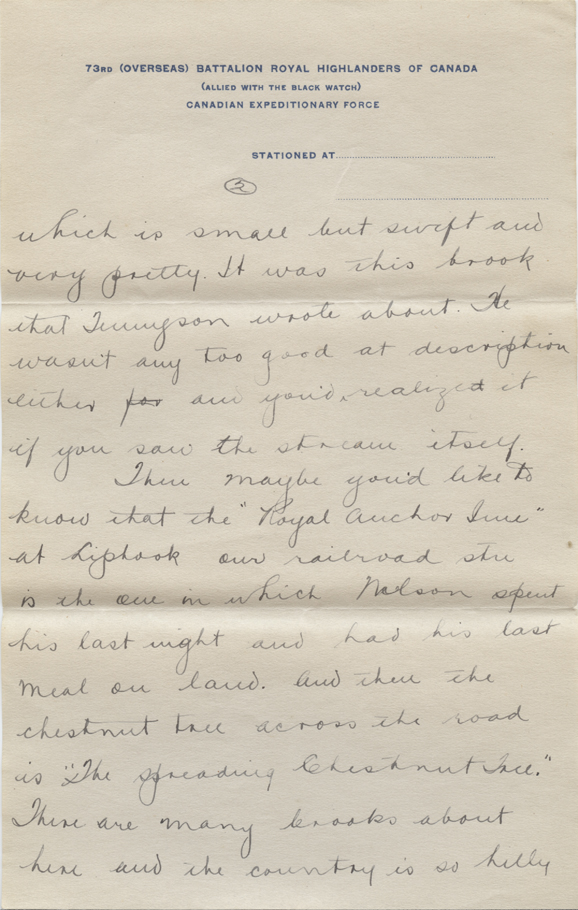 73RD (OVERSEAS) BATTALION ROYAL HIGHLANDERS OF CANADA
(ALLIED WITH THE BLACK WATCH)
CANADIAN EXPEDITIONARY FORCE
STATIONED AT
which is small but swift and
very pretty. It was this brook
that Tennyson wrote about. He
wasn't any too good at description
either for and you'd realized it
if you saw the stream itself.
Then maybe you'd like to
know that the "Royal Anchor Inn"
at Liphook our railroad stn
is the one in which Nelson spent
his last night and had his last
meal on land. And then the
chestnut tree across the road
is "The Spreading Chestnut Tree."
There are many brooks about
here and the country is so hilly